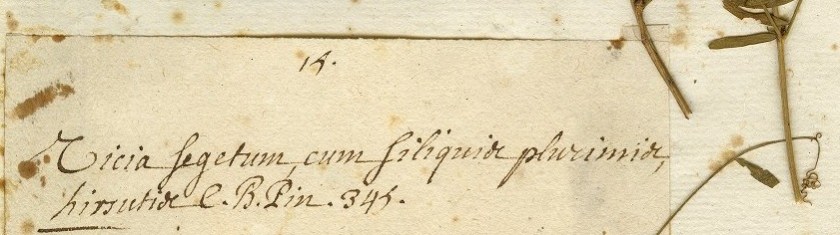 15.
Vicia segetum, cum siliquis plurimis,
hirsutis C. B. Pin. 345.